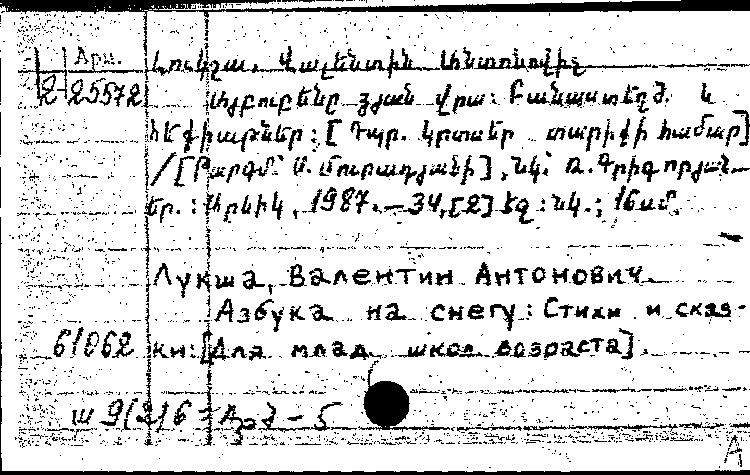 Հրա.
Լուկշա, Վալենտին Անտոնովիչ
2-25572 Այբուբենը ձյան վրա: Բանաստեղծ. և
հեքիաթներ: [Դպր. կրտսեր տարիքի համար]
/[Թարգմ.՝ Ս. Մուրադյանի], նկ.՝ Ռ. Գրիգորյան.—
Եր.: Արևիկ, 1987.—34,[2] էջ: նկ.; 16սմ.
Лукша, Валентин Антонович.
Азбука на снегу: Стихи и сказ-
61062 ки: [Для млад. школ. возраста].
ш 9(2)6 = Арմ - 5
A